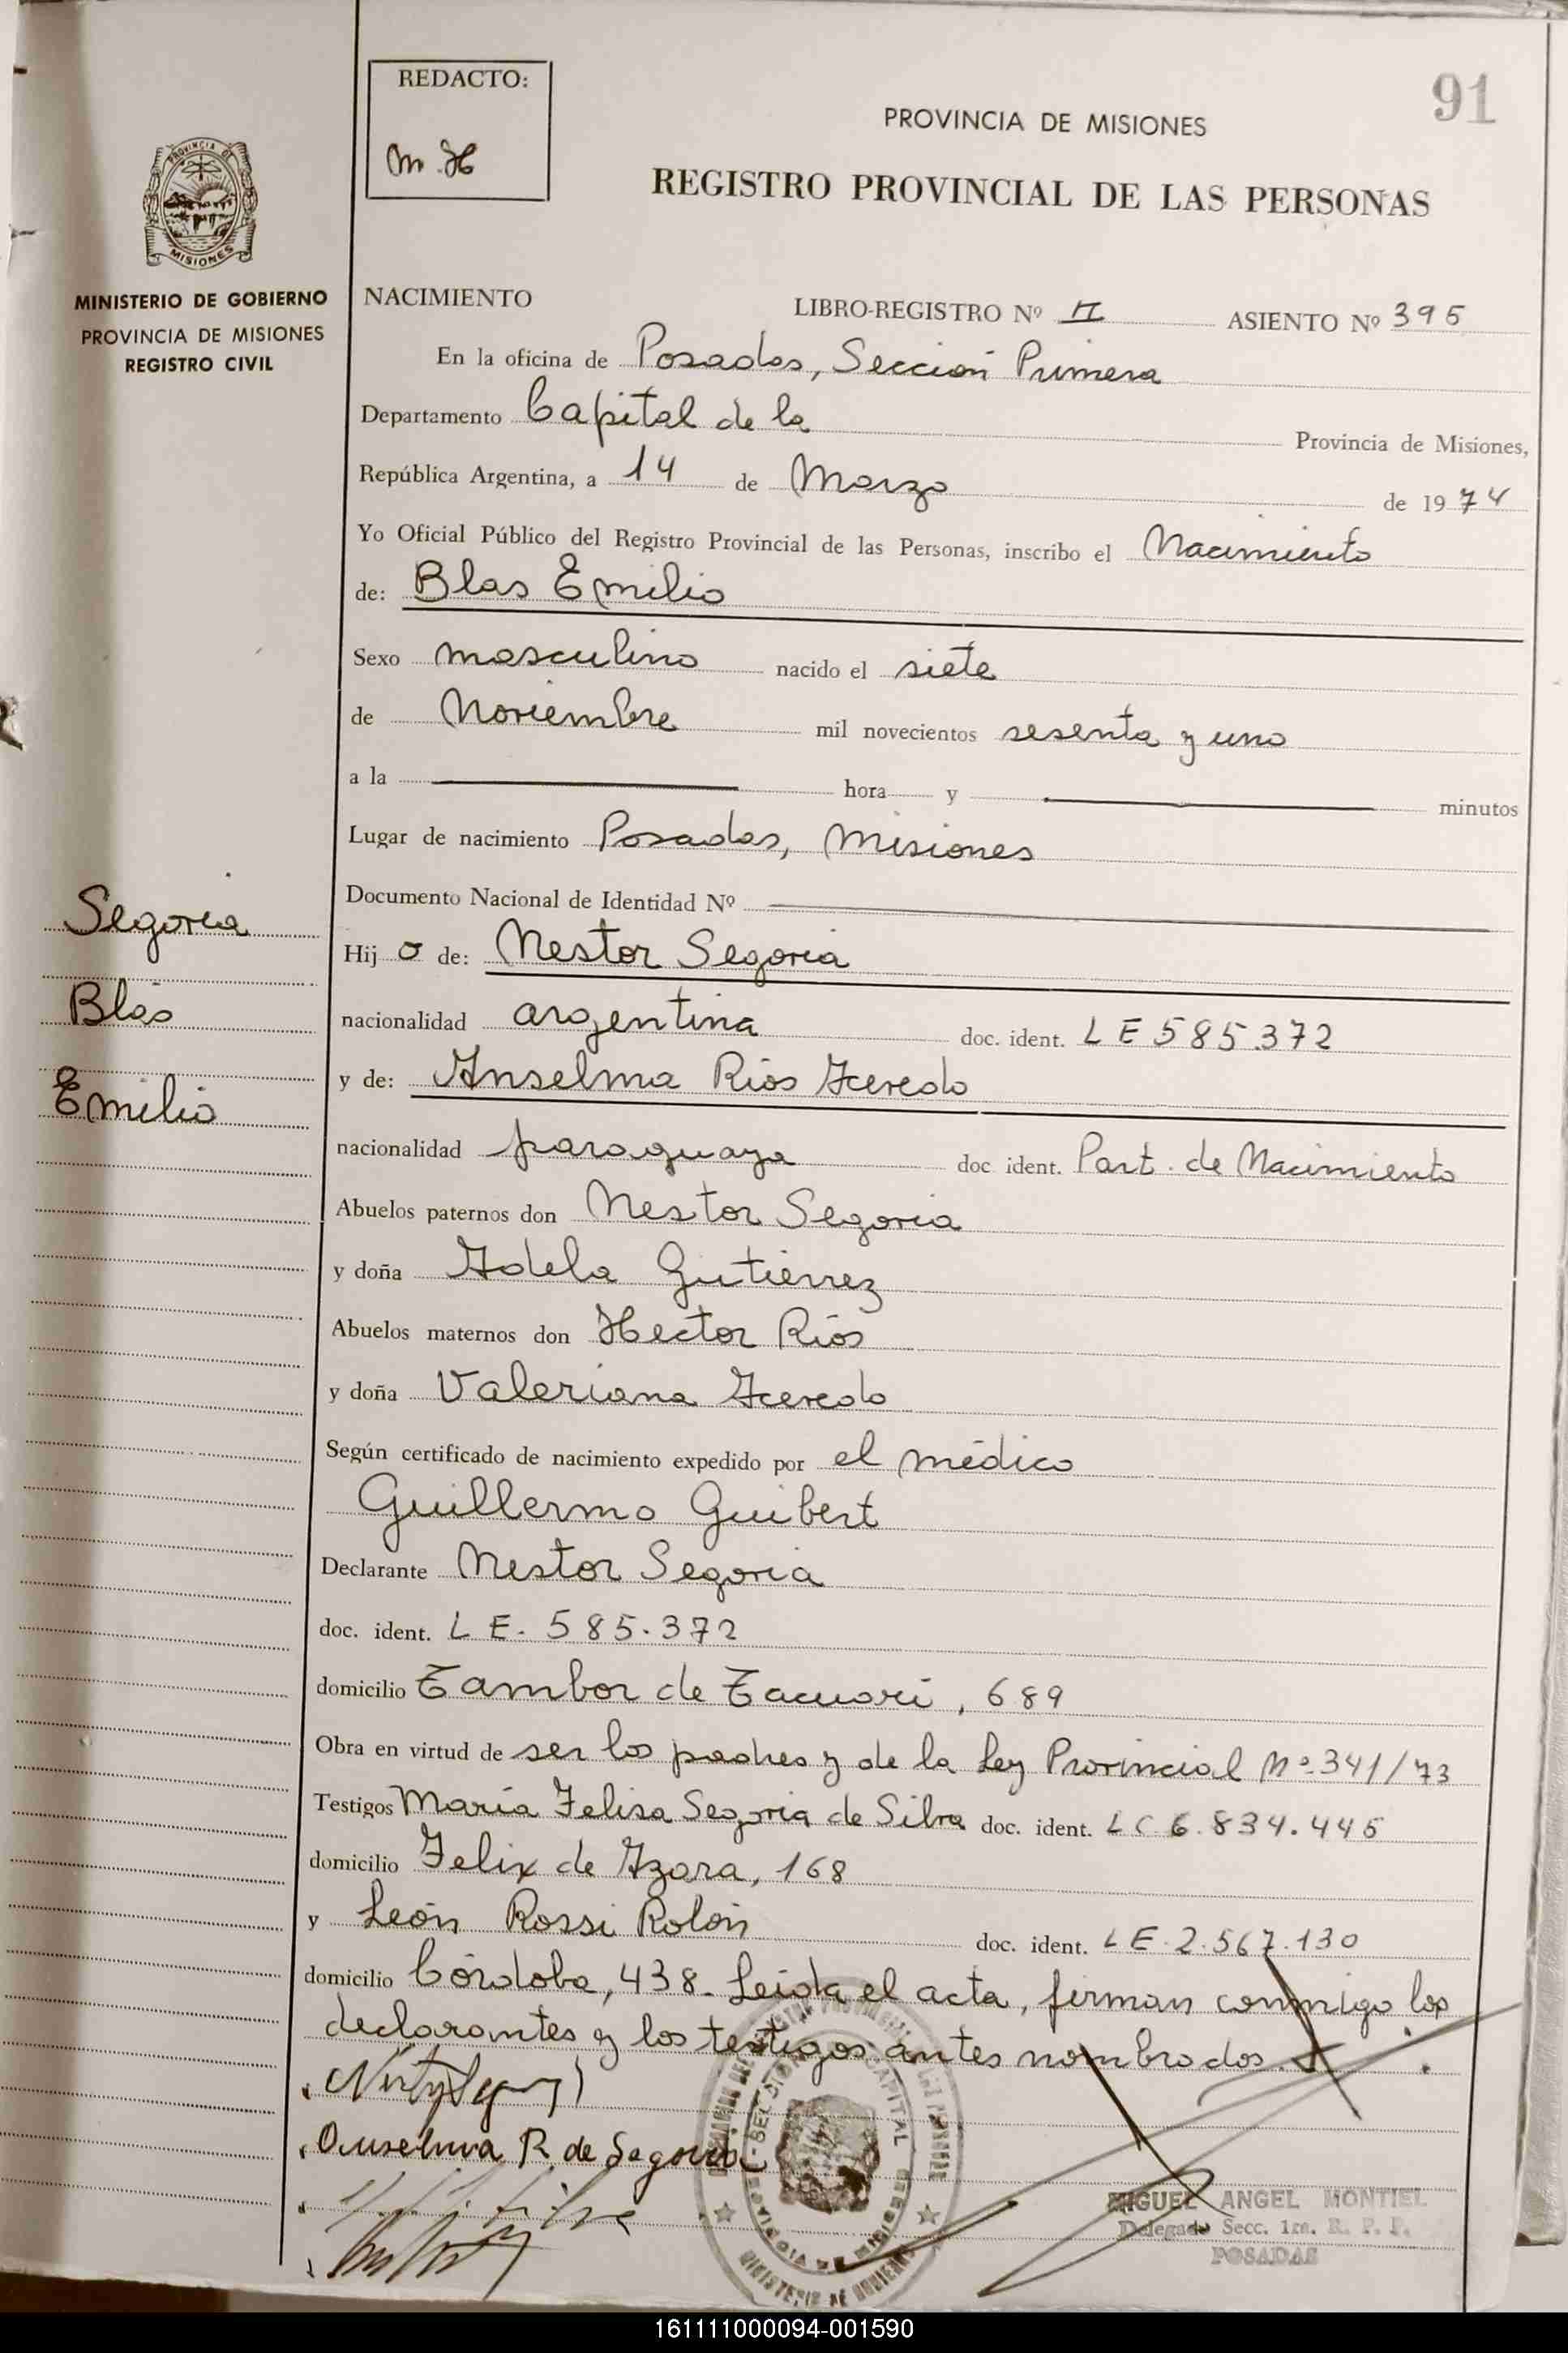 91
REDACTO:
M.H
PROVINCIA DE MISIONES
REGISTRO PROVINCIAL DE LAS PERSONAS
PROVINCIA DE
MISIONES
MINISTERIO DE GOBIERNO
PROVINCIA DE MISIONES
REGISTRO CIVIL
NACIMIENTO LIBRO-REGISTRO Nº II ASIENTO Nº 395
En la oficina de Posadas, Sección Primera
Departamento Capital de la Provincia de Misiones,
República Argentina, a 14 de Marzo de 1974
Yo Oficial Público del Registro Provincial de las Personas, inscribo el Nacimiento
de: Blas Emilio
Sexo masculino nacido el siete
de Noviembre mil novecientos sesenta y uno
a la hora y minutos
Lugar de nacimiento Posadas, Misiones
Documento Nacional de Identidad Nº
Segovia
Blas
Emilio
Hijo de: Nestor Segovia
nacionalidad argentina doc. ident. L E 585.372
y de: Anselma Rios Acevedo
nacionalidad paraguaya doc ident. Part. de Nacimiento
Abuelos paternos don Nestor Segovia
y doña Adela Gutierrez
Abuelos maternos don Hector Rios
y doña Valeriana Acevedo
Según certificado de nacimiento expedido por el médico
Guillermo Guibert
Declarante Nestor Segovia
doc. ident. L E. 585.372
domicilio Tambor de Tacuari, 689
Obra en virtud de ser los padres y de la Ley Provincial Nº 341/73
Testigos María Felisa Segovia de Silva doc. ident. L C 6.834.445
domicilio Felix de Azara, 168
y León Rossi Rolón doc. ident. L E. 2.567.130
domicilio Córdoba, 438. Leida el acta, firman conmigo los
declarantes y los testigos antes nombrados.
Anselma R. de Segovia
MIGUEL ANGEL MONTIEL
Delegado Secc. 1ra. R. P. P.
POSADAS
CAPITAL
MINISTERIO DE GOBIERNO
161111000094-001590